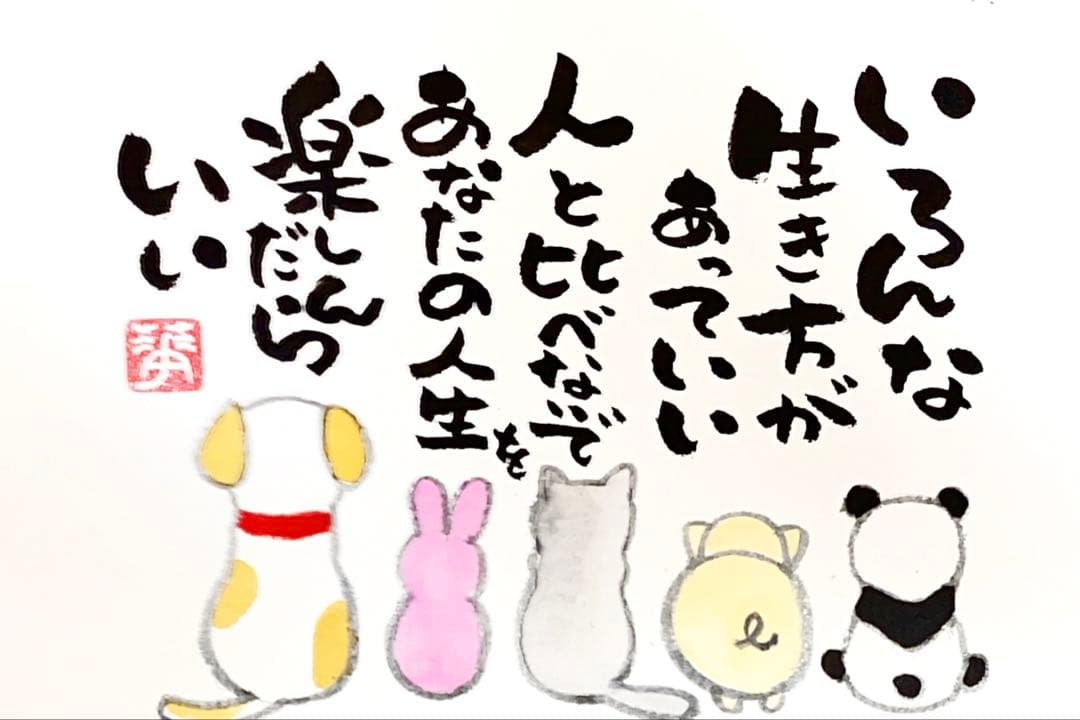 いろんな
生き方が
あっていい
人と比べないで
あなたの人生を
楽しんだら
いい